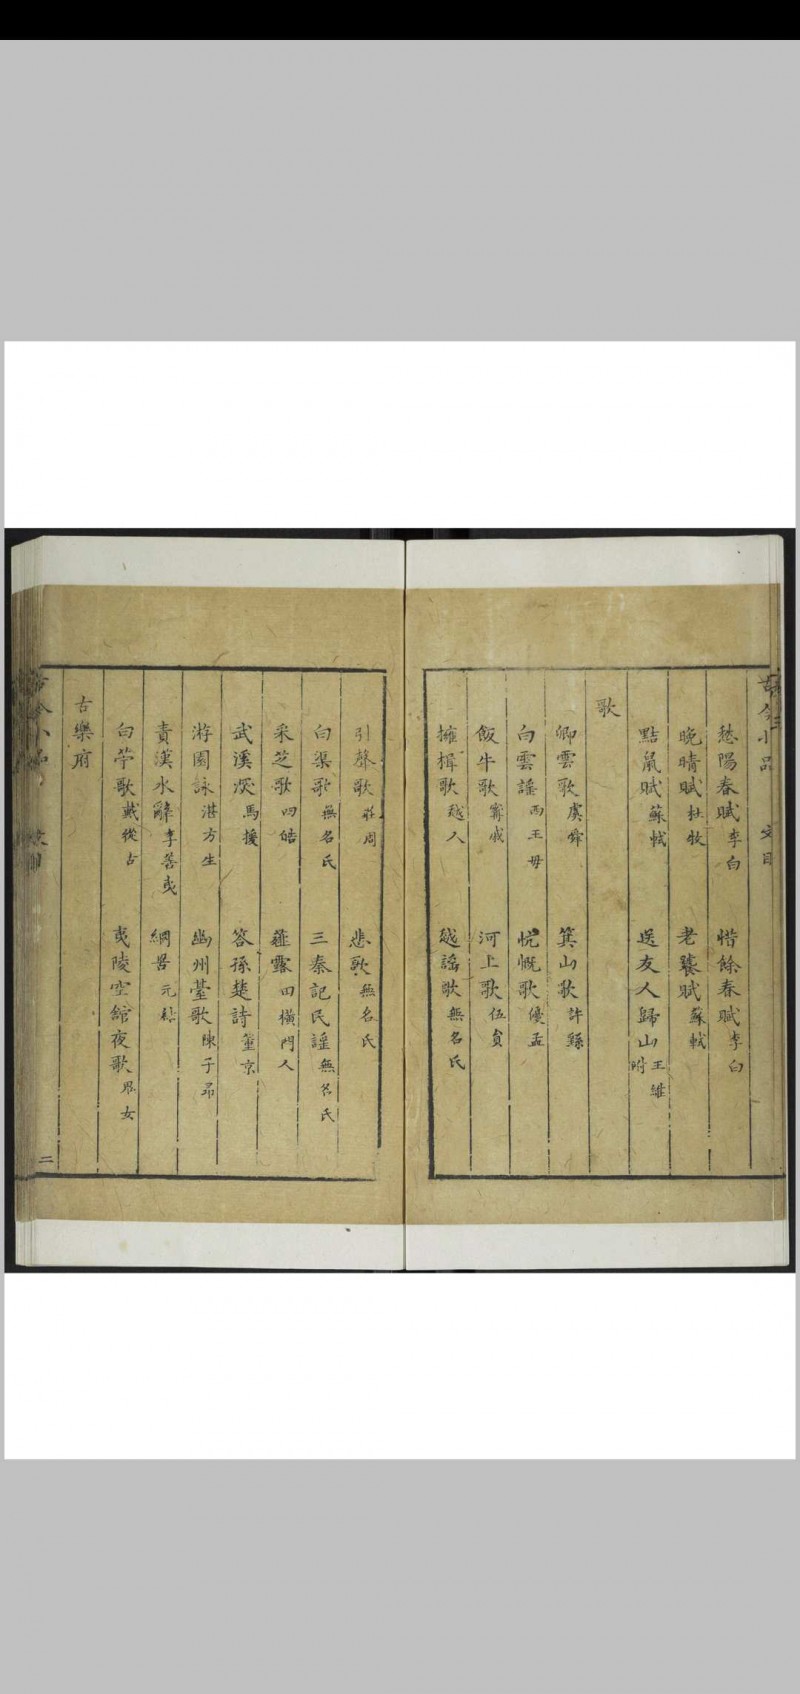 古今小品 文目
愁陽春賦 李白 惜餘春賦 李白
晚晴賦 杜牧 老饕賦 蘇軾
黠鼠賦 蘇軾 送友人歸山 王維 附
歌
卿雲歌 虞舜 箕山歌 許繇
白雲謠 西王母 忼慨歌 優孟
飯牛歌 甯戚 河上歌 伍員
擁楫歌 越人 越謠歌 無名氏
引聲歌 莊周 悲歌 無名氏
白渠歌 無名氏 三秦記民謠 無名氏
采芝歌 四皓 薤露 田橫門人
武溪深 馬援 答孫楚詩 董京
游園詠 湛方生 幽州臺歌 陳子昂
責漢水辭 李善夷 網罟 元結
白苧歌 戴從古 夷陵空館夜歌 鬼女
古樂府
二